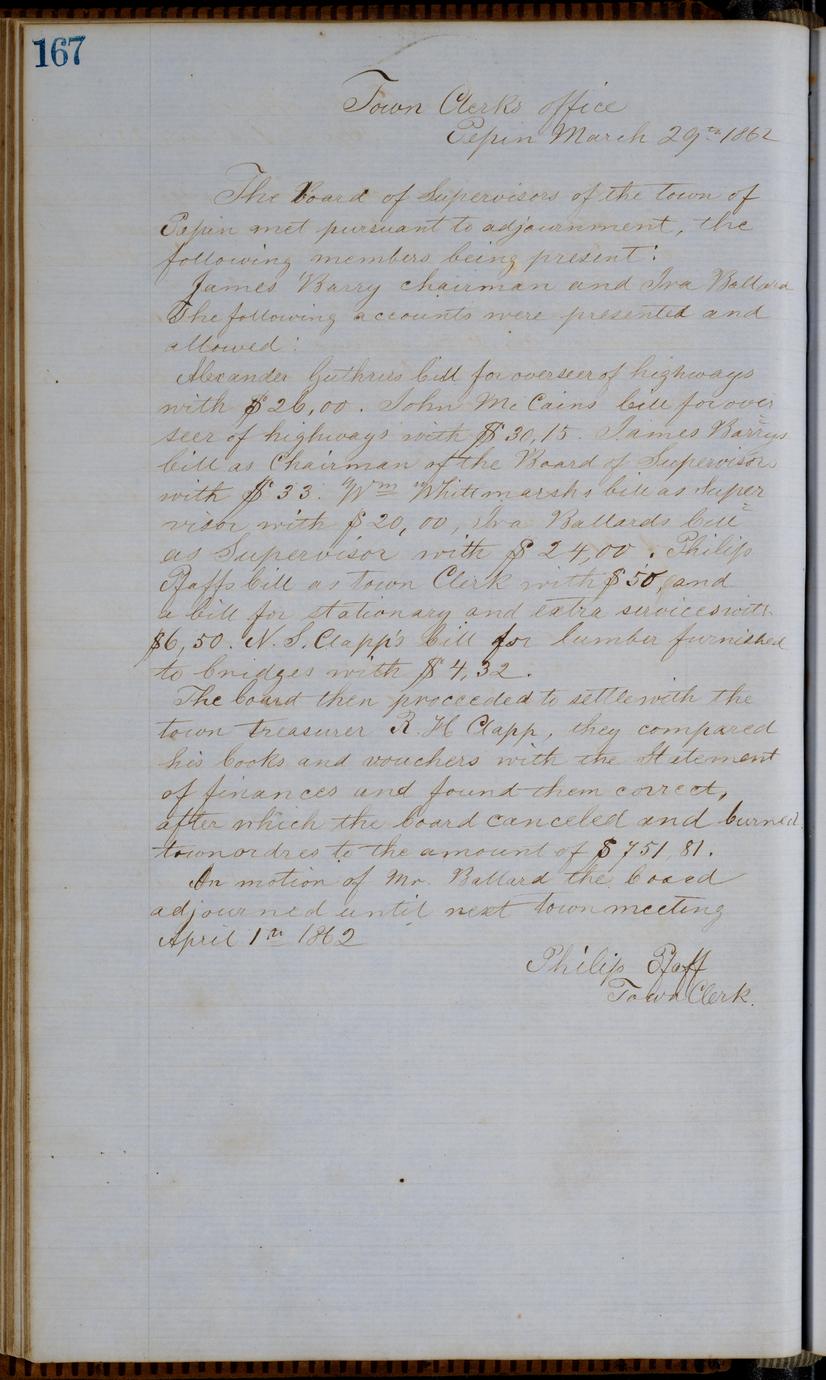 167
Town Clerks office
Pepin March 29th 1862
The Board of Supervisors of the town of
Pepin met pursuant to adjournment, the
following members being present:
James Barry chairman and Ira Ballard
The following accounts were presented and
allowed:
Alexander Guthries bill for overseer of highways
with $26,00. John McCains bill for over
seer of highways with $30,15. James Barrys
bill as Chairman of the Board of Supervisors
with $33. Wm Whitmarshs bill as Super
visor with $20,00, Ira Ballards bill
as Supervisor with $24,00. Philip
Pfaffs bill as town Clerk with $50, and
a bill for stationary and extra services with
$6,50. N. S. Clapp's bill for lumber furnished
to bridges with $4,32.
The board then proceeded to settle with the
town treasurer R. H Clapp, they compared
his books and vouchers with the Statement
of finances and found them correct,
after which the board canceled and burned
town ordres to the amount of $751,81.
On motion of Mr. Ballard the board
adjourned until next town meeting
April 1st 1862
Philip Pfaff
Town Clerk.